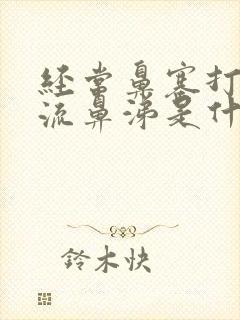 经常鼻塞打
流鼻涕是什
鈴木快